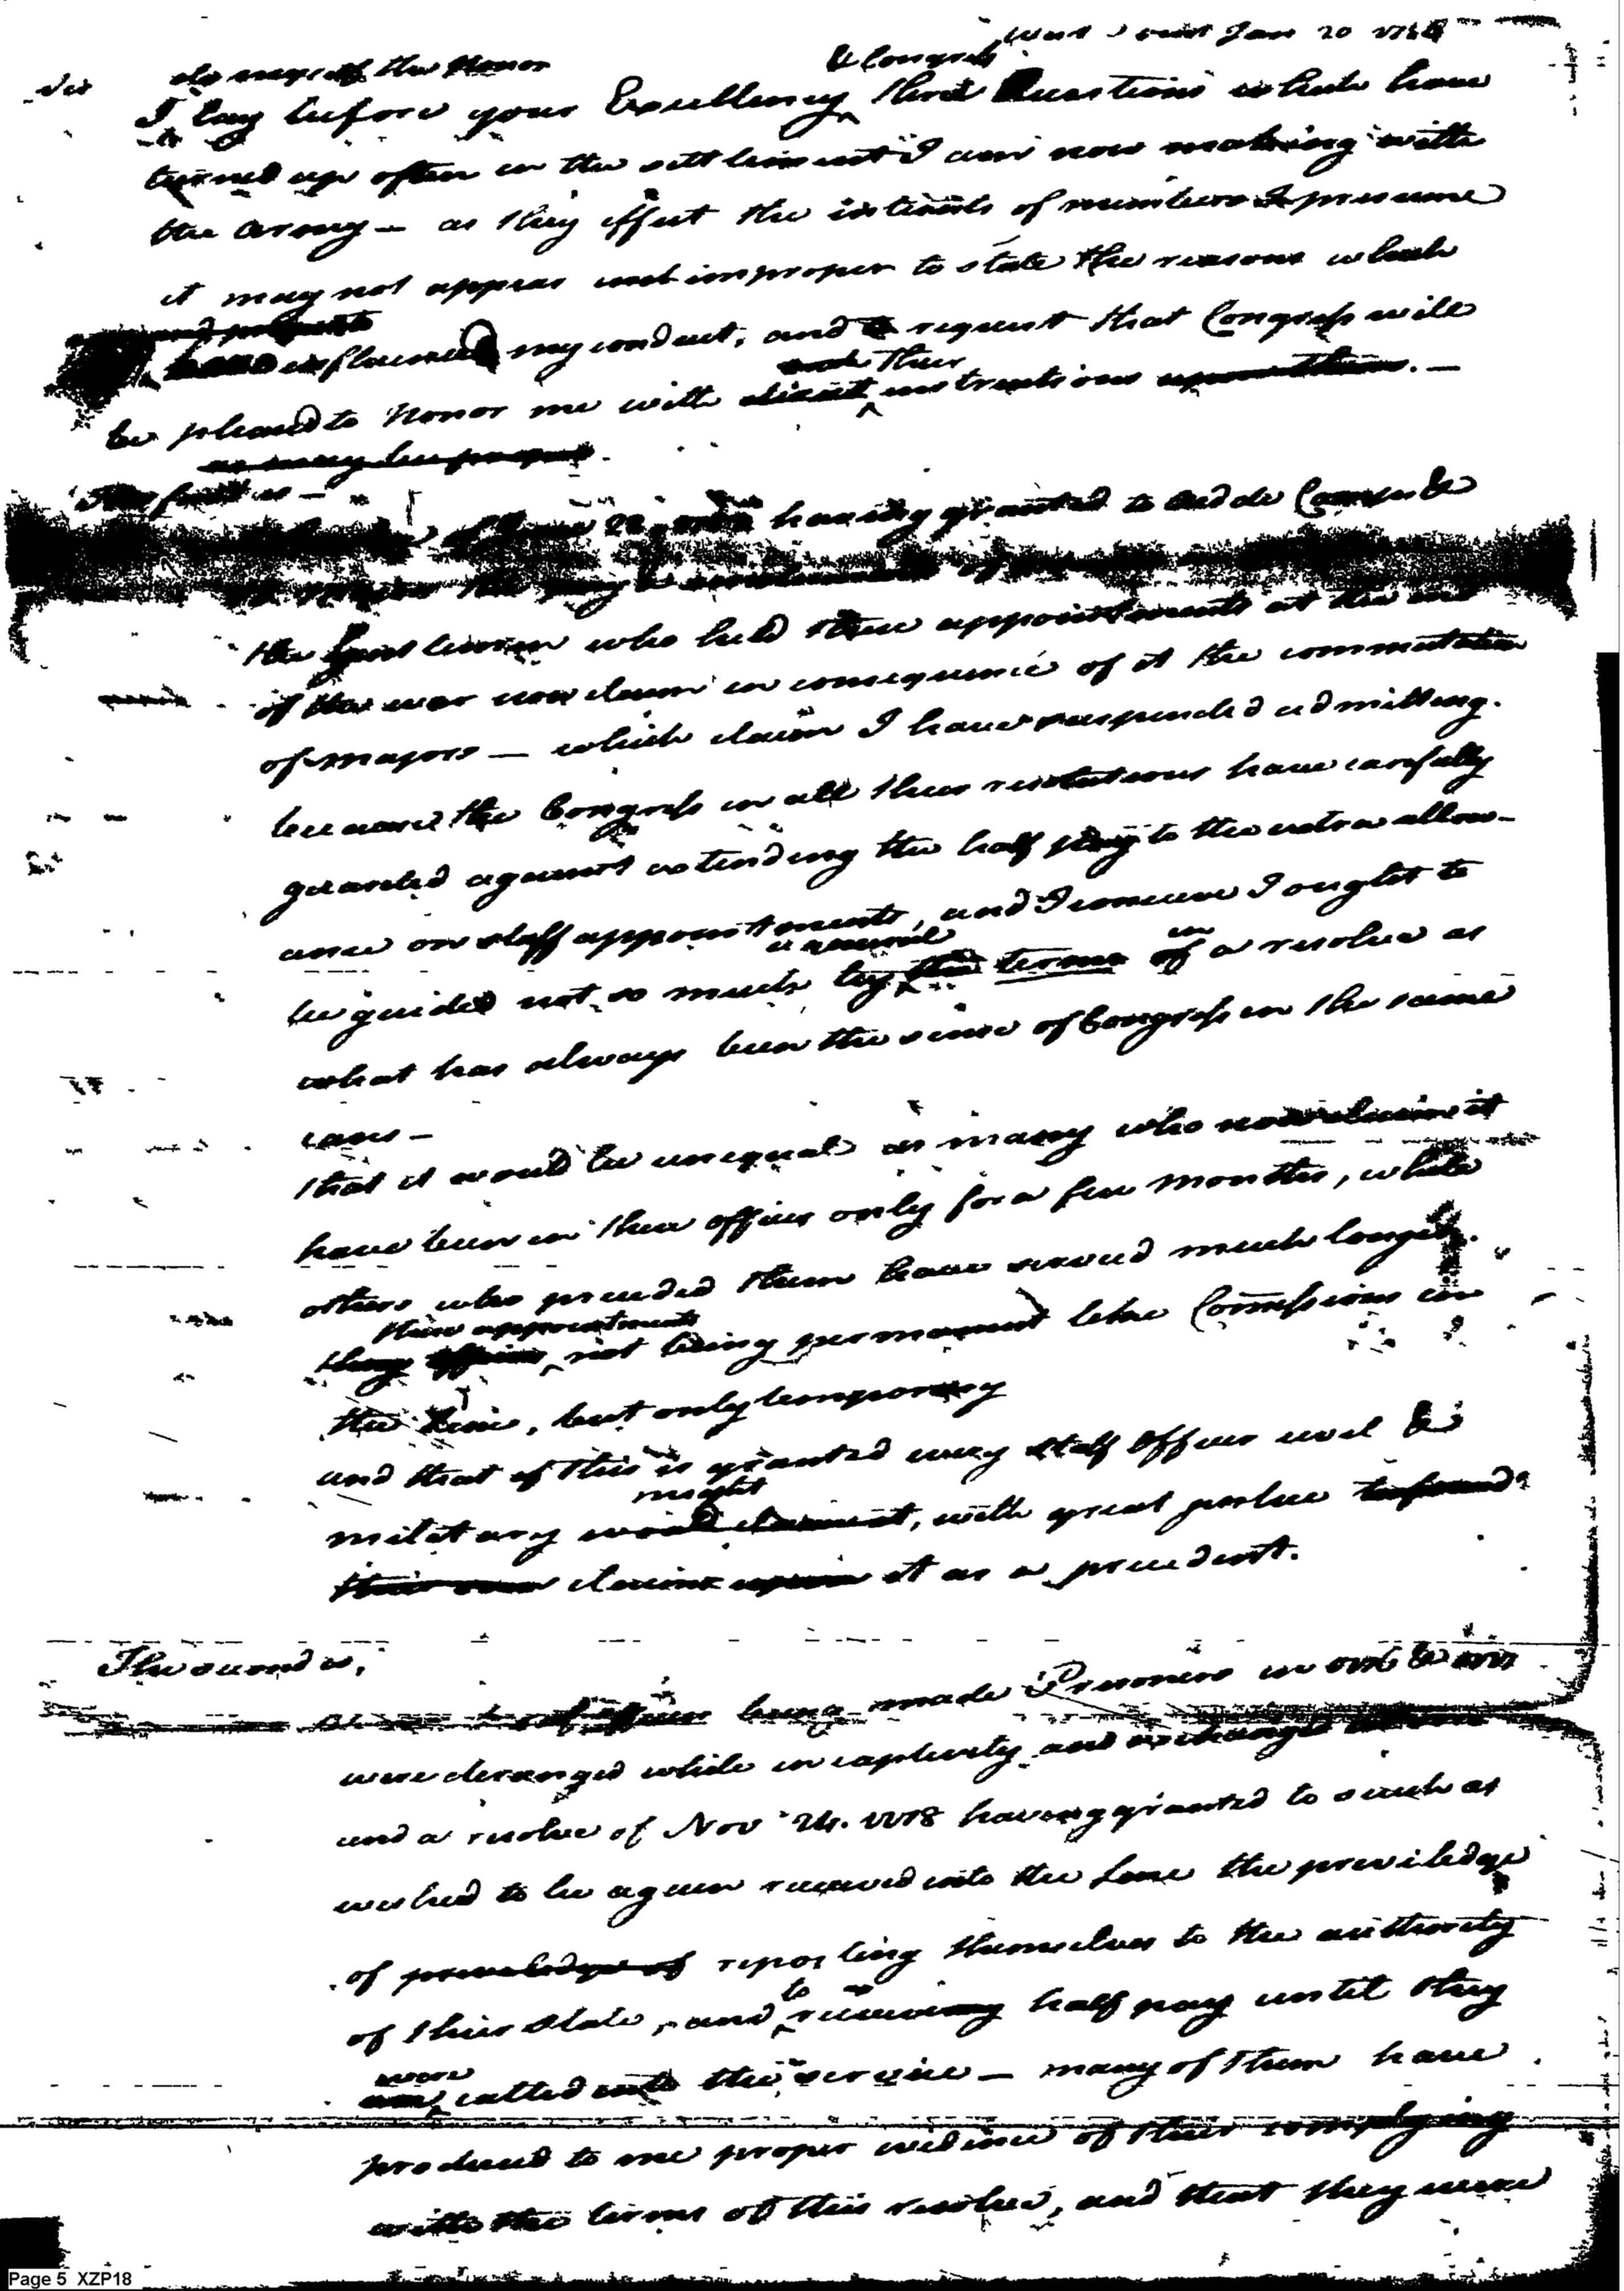 Jan 20
do myself the Honor
& Congress
I lay before your Excellency three Questions which have
turned up often in the settlement I am now making with
the Army — as they effect the interests of numbers I presume
it may not appear improper to state the reasons which
influenced my conduct, and request that Congress will
their
be pleased to Honor me with direct instructions upon them. —
as may be proper.
The first is —
of June 22 having granted to Aid de Camps &
the pay &
the Gentlemen who held these appointments at the end
of the war now claim in consequence of it the commutation
of majors — which claim I have suspended admitting.
because the Congress in all their resolutions have carefully
guarded against extending the half pay to the extra allow-
ance on staff appointments, and I conceive I ought to
a general
in
be guided not so much by the terms of a resolve as
what has always been the sense of Congress in the same
cases —
that it would be unequal as many who now claim it
have been in these offices only for a few months, while
others who preceded them have served much longer.
their appointments
they offices not being permanent like Commissions in
the line, but only temporary
and that if this is granted every staff officer civil &
might
military would claim it, with great justice to found
their own claims upon it as a precedent.
The second is,
of officers being made Prisoners in &
were deranged while in captivity and exchanged
and a resolve of Nov 24. 1778 having granted to such as
wished to be again received into the Line the priviledge
of priviledge of reporting themselves to the authority
to
of their State, and receiving half pay until they
were
are called into the service — many of them have
produced to me proper evidence of their complying
with the terms of this resolve, and that they were
Page 5 XZP18